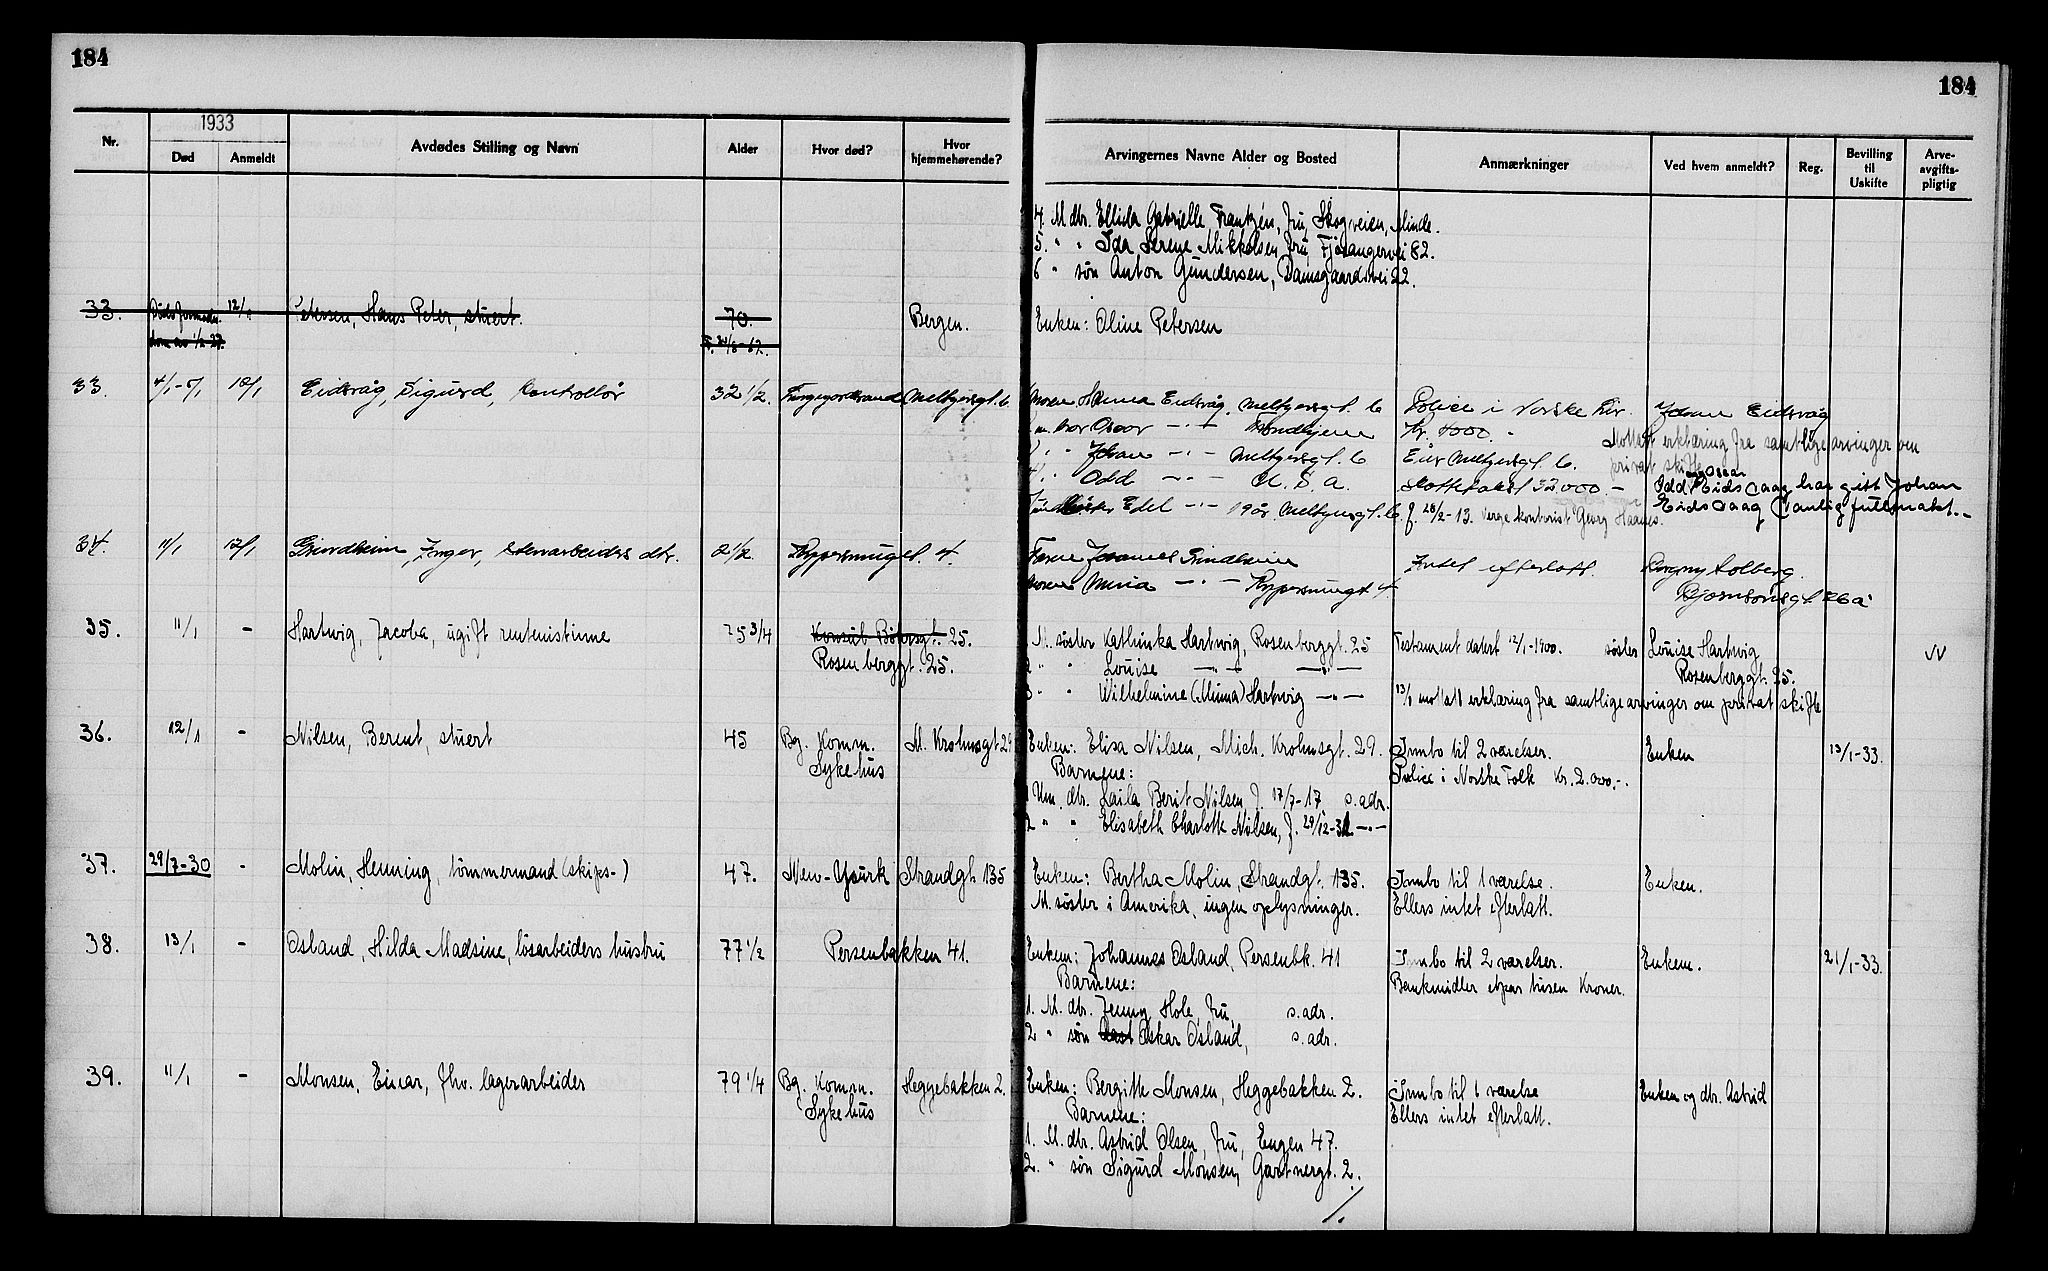 184
184
1933
Nr.
Død
Anmeldt
Avdødes Stilling og Navn
Alder
Hvor død?
Hvor hjemmehørende?
Arvingernes Navne Alder og Bosted
Anmærkninger
Ved hvem anmeldt?
Reg.
Bevilling til Uskifte
Arve-avgifts-pligtig
4. M dtr. Ellida Gabrielle Frantzén, fru, Skogveien, Minde.
5. " " Ida Serene Mikkelsen, fru, Fjøsangervei 82.
6 " søn Anton Gundersen, Damsgaardsvei 22.
33. 12/1 Petersen, Hans Peter, stuert. 70. Bergen. Enken: Oline Petersen
dom av 1/2 27.
33. 4/1-5/1 12/1 Eidsvåg, Sigurd, kontrollør 32 1/2. Meltzersgt. 6 Eidsvåg, Meltzersgt. 6 Police i Norske Liv. Johan Eidsvåg
Oscar -"- Kr. 4000.- Mottatt erklæring fra samtlige arvinger om
Johan -"- Meltzersgt. 6 Eier Meltzersgt. 6. privat skifte
Odd -"- U.S.A. Skattetakst 32000.- Odd Eidsvaag har gitt Johan
Edel -"- 19 år. Meltzersgt. 6. f. 28/2-13. Verge kontorist Georg Eidsvaag fullmakt.-
34. 11/1 12/1 Grindheim, Inger, dtr. 2 1/2. 4. Johannes Grindheim Intet efterlatt. Solberg.
-"- 4. Bjørnsonsgt. 26a
35. 11/1 - Hartwig, Jacoba, ugift rentenistinne 75 3/4 25. M. søster Kathinka Hartwig, Rosenberggt. 25 Testament datert 12/1-1900. søster Louise Hartwig N
Rosenberggt. 25. 2 " " Louise -"- -"- Rosenberggt. 25.
3 " " Wilhelmine (Minna) Hartwig -"- 13/1 mottatt erklæring fra samtlige arvinger om privat skifte
36. 12/1 - Nilsen, Berent, stuert 45 Bg. Komm. M. Krohnsgt 29 Enken: Elisa Nilsen, Mich. Krohnsgt. 29. Innbo til 2 værelser. Enken 13/1-33.
Sykehus Barnene: Police i Norske Folk Kr. 2.000.-.
1 Um. dtr. Laila Berit Nilsen, f. 17/7-17 s. adr.
2 " " Elisabeth Charlotte Nilsen, f. 29/12-31 -"-
37. 29/7-30 - Molin, Henning, tømmermand (skips-) 47. New-Yourk Strandgt. 135 Enken: Bertha Molin, Strandgt. 135. Innbo til 1 værelse. Enken.
M. søster i Amerika, ingen oplysninger. Ellers intet efterlatt.
38. 13/1 - Osland, Hilda Madsine, løsarbeiders hustru 77 1/2 Persenbakken 41. Enkem: Johannes Osland, Persenbk. 41 Innbo til 2 værelser. Enkem. 21/1-33.
Barnene: Bankmidler etpar tusen Kroner.
1. M. dtr. Jenny Hole, fru, s. adr.
2 " søn Oskar Osland, s. adr.
39. 11/1 - Monsen, Einar, fhv. lagerarbeider 79 1/4 Bg. Komm. Heggebakken 2. Enken: Bergitte Monsen, Heggebakken 2. Innbo til 1 værelse Enken og dtr. Astrid
Sykehus Barnene: Ellers intet efterlatt.
1. M. dtr. Astrid Olsen, fru, Engen 47.
2. " søn Sigurd Monsen, Gartnergt. 2.